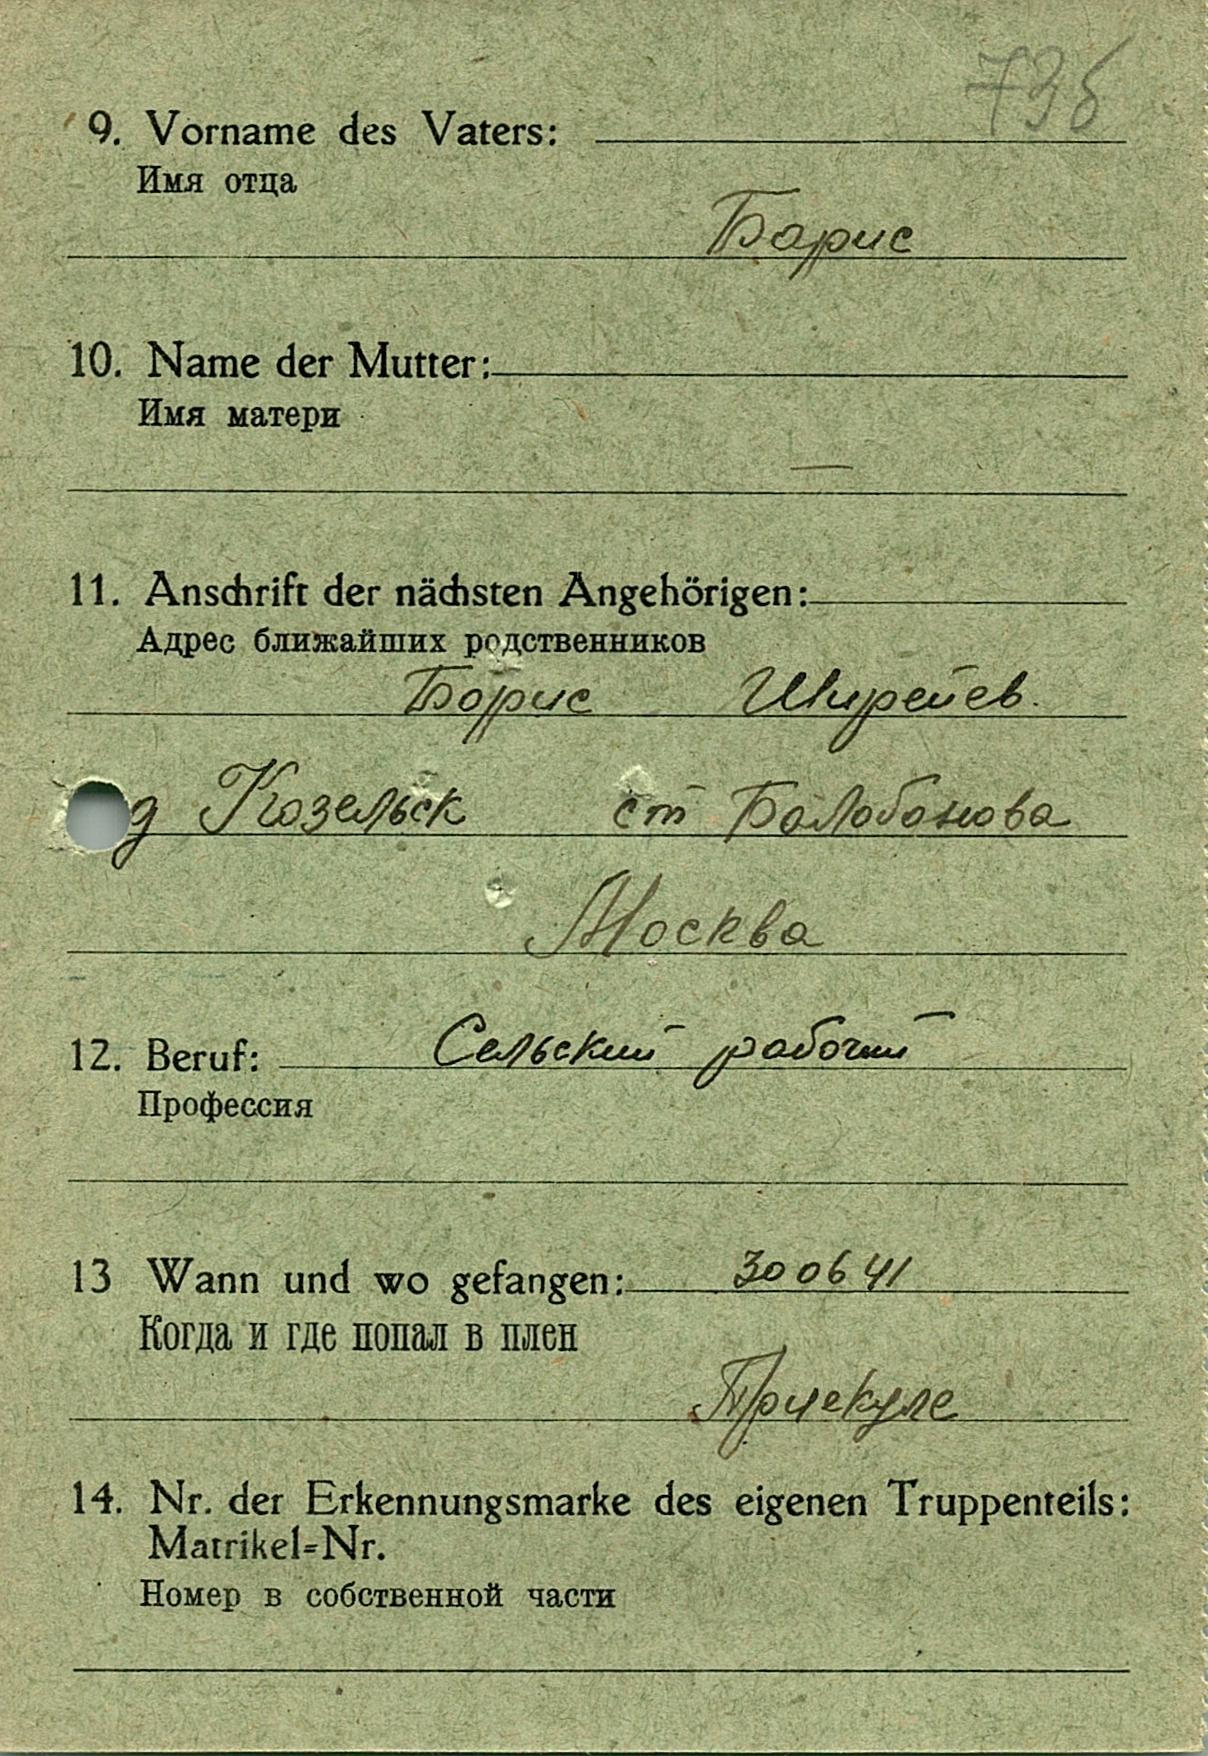 736
9. Vorname des Vaters:
Имя отца
Борис
10. Name der Mutter:
Имя матери
—
11. Anschrift der nächsten Angehörigen:
Адрес ближайших родственников
Борис
д Козельск ст Балобанова
Москва
12. Beruf: Сельский рабочий
Профессия
13 Wann und wo gefangen: 30 06 41
Когда и где попал в плен
Приекуле
14. Nr. der Erkennungsmarke des eigenen Truppenteils:
Matrikel=Nr.
Номер в собственной части